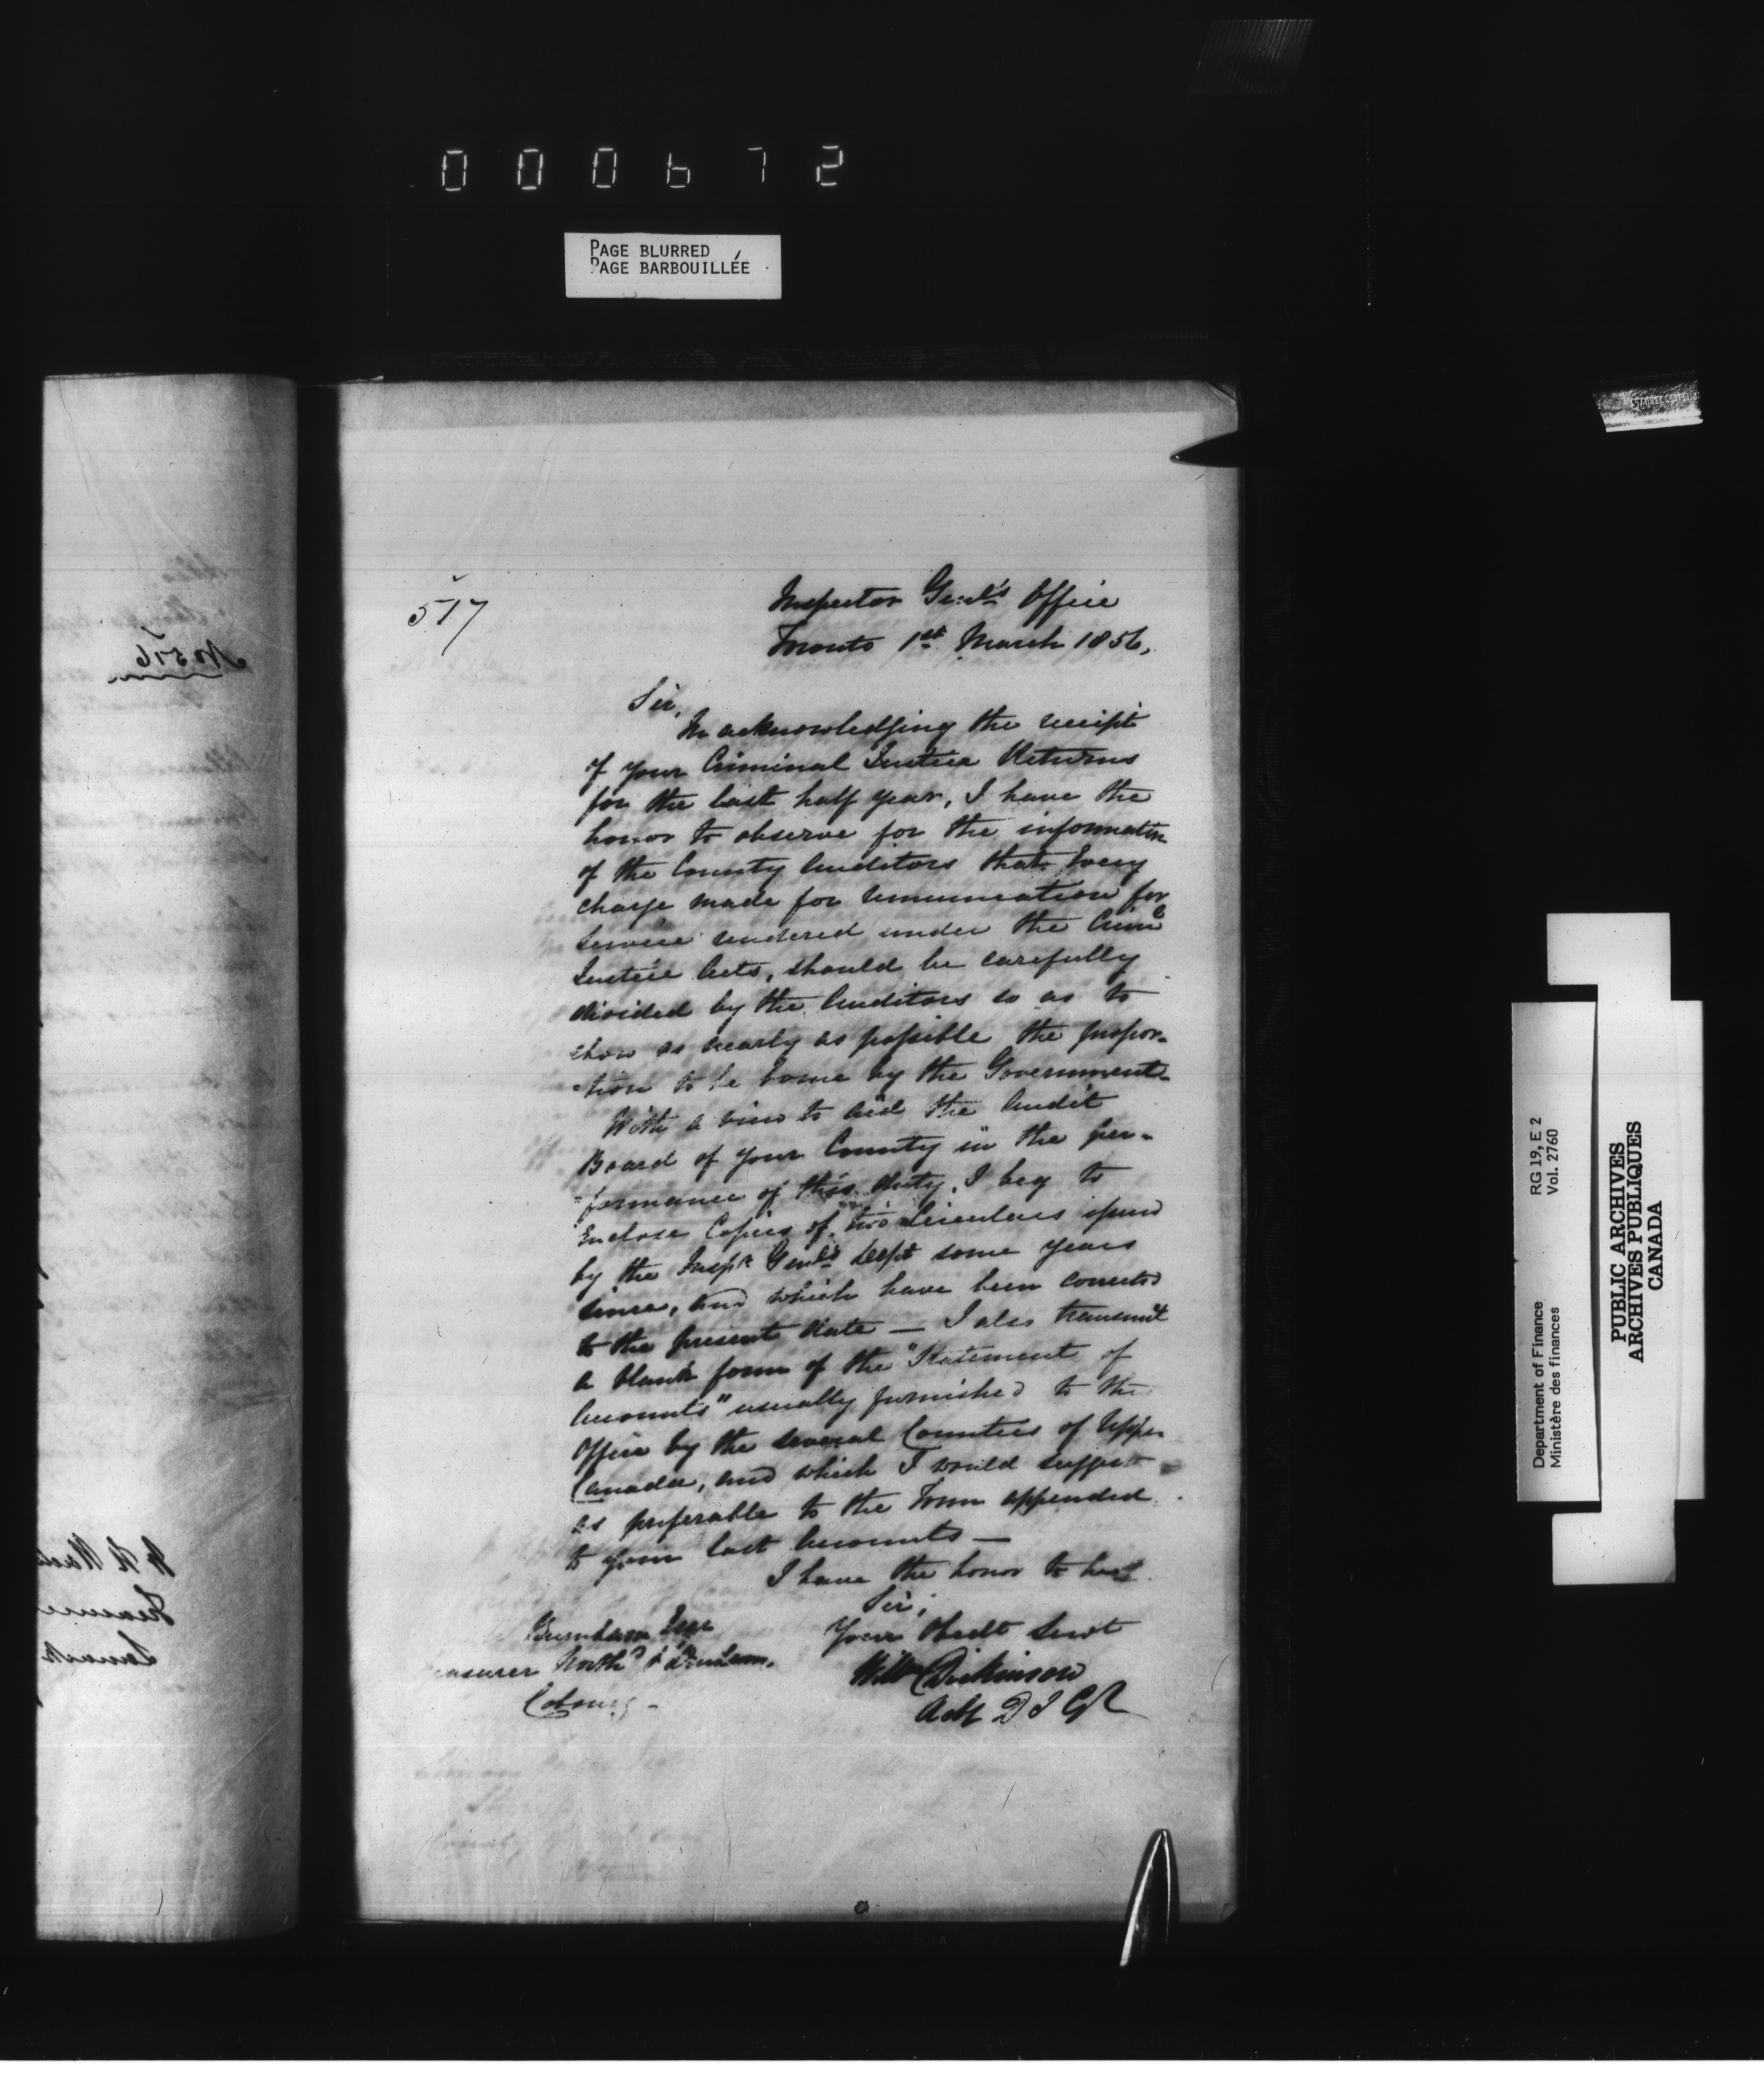 000672
PAGE BLURRED
PAGE BARBOUILLÉE
No 516
517
Inspector Genl's Office
Toronto 1st March 1856,
Sir,
In acknowledging the receipt
of your Criminal Justice Returns
for the last half year, I have the
honor to observe for the information
of the County Auditors that every
charge made for remuneration for
service rendered under the Criml
Justice Acts, should be carefully
divided by the Auditors so as to
show as nearly as possible the propor-
-tion to be borne by the Government-
With a view to aid the Audit
Board of your County in the per-
-formance of this duty, I beg to
Enclose Copies of two Circulars issued
by the Inspr Genl's Dept some years
since, and which have been corrected
to the present date — I also transmit
a blank form of the "Statement of
Accounts" usually furnished to the
Office by the several Counties of Upper
Canada, and which I would suggest
as preferable to the Form appended
to your last Accounts —
I have the honor to be
Sir,
Your Obedt Servt
Willm Dickinson
Actg D I Gl
Burnham Esqr
easurer Northd & Durham.
Cobourg -
Department of Finance RG 19, E 2
Ministère des finances Vol. 2760
PUBLIC ARCHIVES
ARCHIVES PUBLIQUES
CANADA